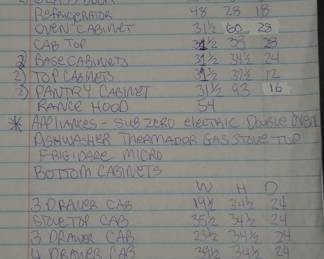 REFRIGERATOR 48 28 18
OVEN CABINET 31½ 60 28
CAB TOP 31½ 38 28
2) BASE CABINETS 31½ 34½ 24
2) TOP CABINETS 31½ 37½ 12
2) PANTRY CABINET 31½ 93 16
RANGE HOOD 54
* APPLIANCES - SUB ZERO ELECTRIC DOUBLE OVEN
DISHWASHER THERMADOR GAS STOVE TOP
FRIGIDARE MICRO
BOTTOM CABINETS
W H D
3 DRAWER CAB 19½ 34½ 24
STOVE TOP CAB 35½ 34½ 24
3 DRAWER CAB 23½ 34½ 24
4 DRAWER CAB 39½ 34½ 24